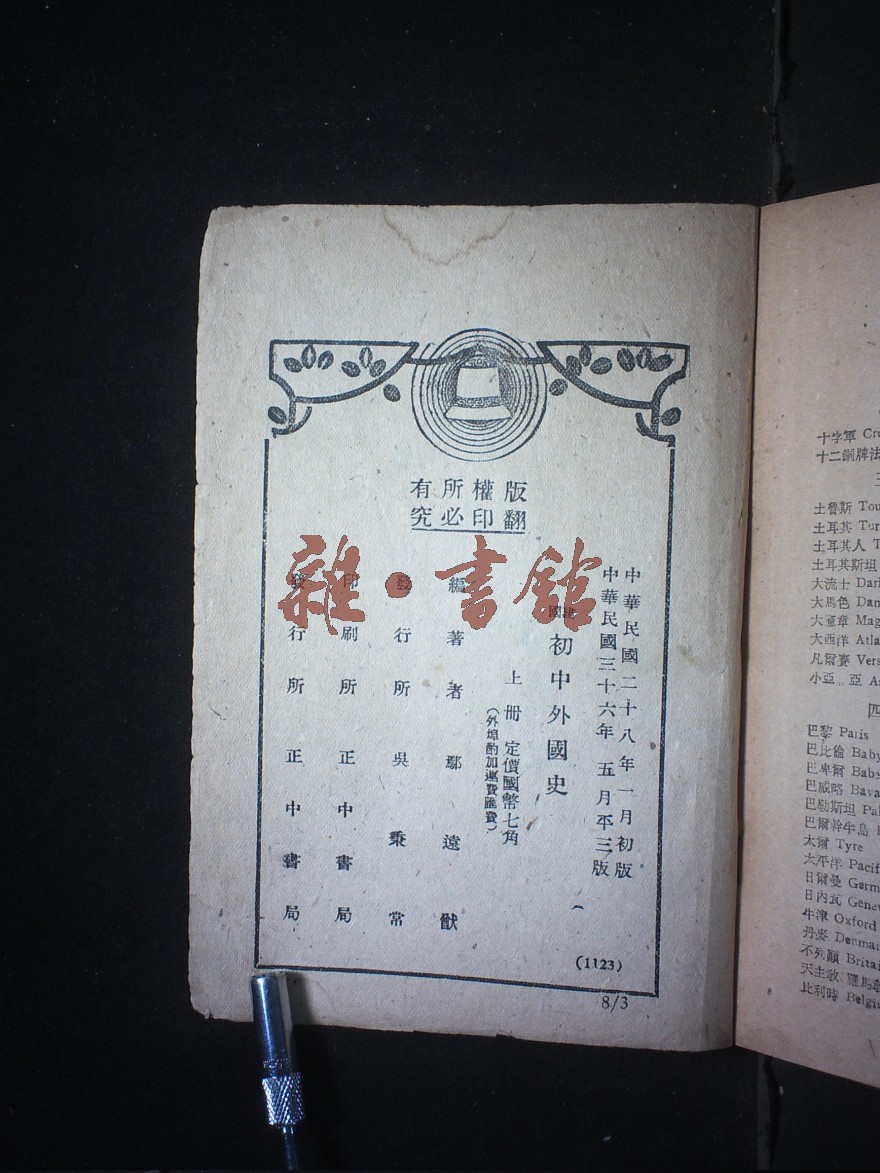 版權所有
翻印必究
中華民國二十八年一月初版
中華民國三十六年五月平三版
建國
初中外國史
上冊 定價國幣七角
(外埠酌加運費匯費)
編著者鄢遠猷
發行所吳秉常
印刷所正中書局
發行所正中書局
(1123)
8/3
雜·書館
十字軍 Cru
十二銅牌法
土魯斯 Tou
土耳其 Tur
土耳其人 T
土耳其斯坦
大流士 Dari
大馬色 Dam
大憲章 Mag
大西洋 Atla
凡爾賽 Vers
小亞 亞 A
四
巴黎 Paris
巴比倫 Baby
巴卑爾 Babe
巴威略 Bava
巴勒斯坦 Pal
巴爾幹半島
太爾 Tyre
太平洋 Pacif
日爾曼 Germ
日內瓦 Gene
牛津 Oxford
丹麥 Denmar
不列顛 Britai
天主教 羅馬
比利時 Belgiu